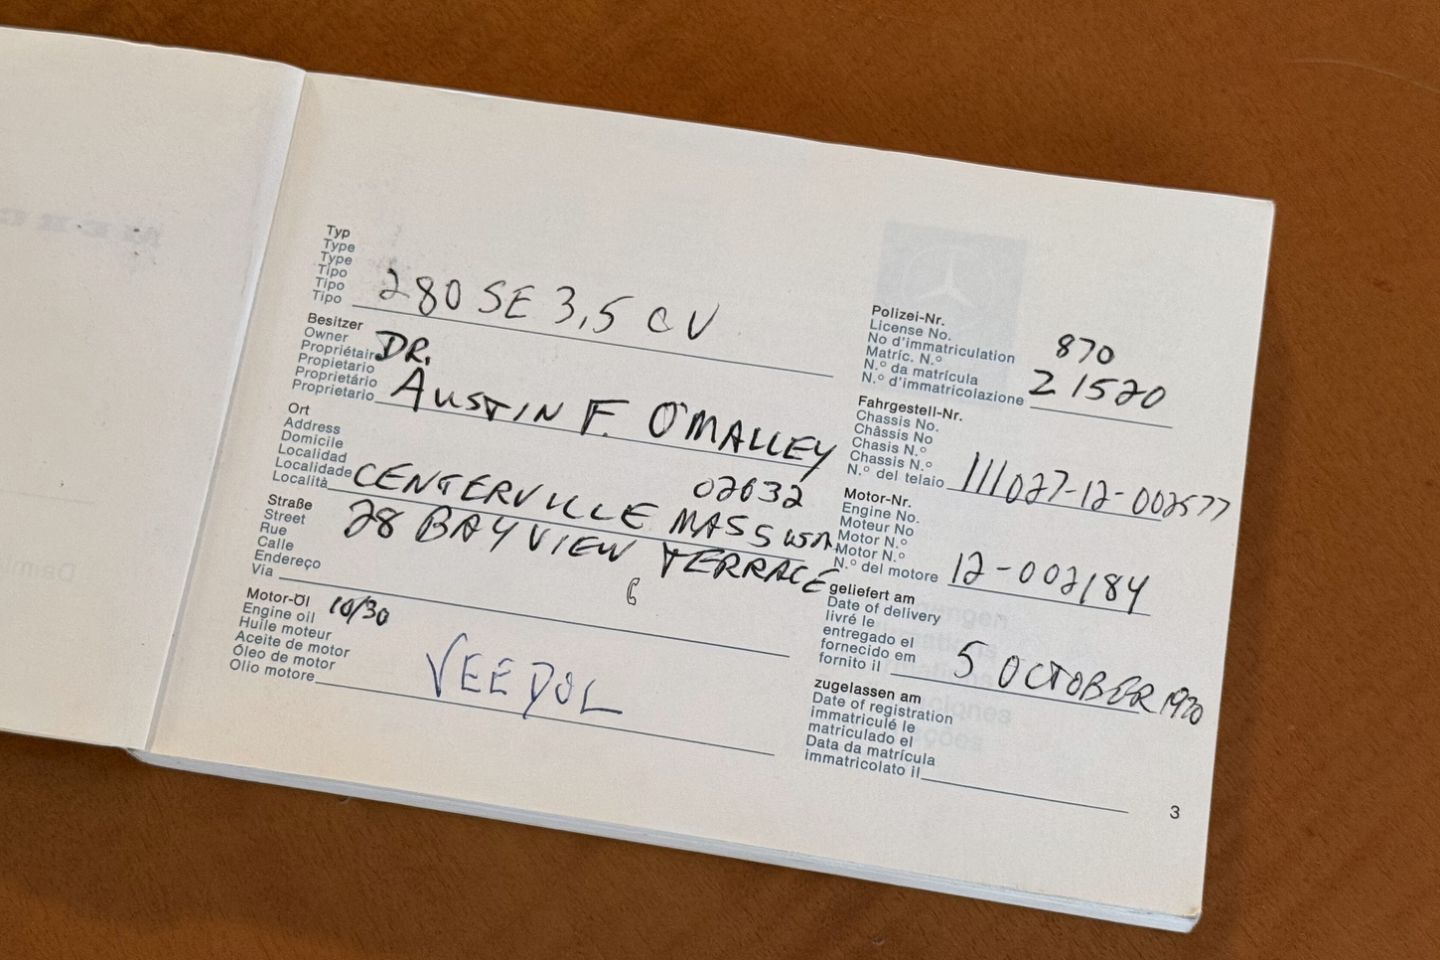 Typ
Type
Type
Tipo
Tipo
Tipo
280 SE 3,5 CV
Besitzer
Owner
Propriétaire
Propietario
Proprietário
Proprietario
DR.
AUSTIN F. O'MALLEY
Ort
Address
Domicile
Localidad
Localidade
Località
02632
CENTERVILLE MASS USA
Straße
Street
Rue
Calle
Endereço
Via
28 BAYVIEW TERRACE
Motor-Öl
Engine oil
Huile moteur
Aceite de motor
Óleo de motor
Olio motore
10/30
VEEDOL
Polizei-Nr.
License No.
No d'immatriculation
Matríc. N.º
N.º da matrícula
N.º d'immatricolazione
870
Z 1520
Fahrgestell-Nr.
Chassis No.
Châssis No
Chasis N.º
Chassis N.º
N.º del telaio
111027-12-002577
Motor-Nr.
Engine No.
Moteur No
Motor N.º
Motor N.º
N.º del motore
12-002184
geliefert am
Date of delivery
livré le
entregado el
fornecido em
fornito il
5 OCTOBER 1970
zugelassen am
Date of registration
immatriculé le
matriculado el
Data da matrícula
immatricolato il
3